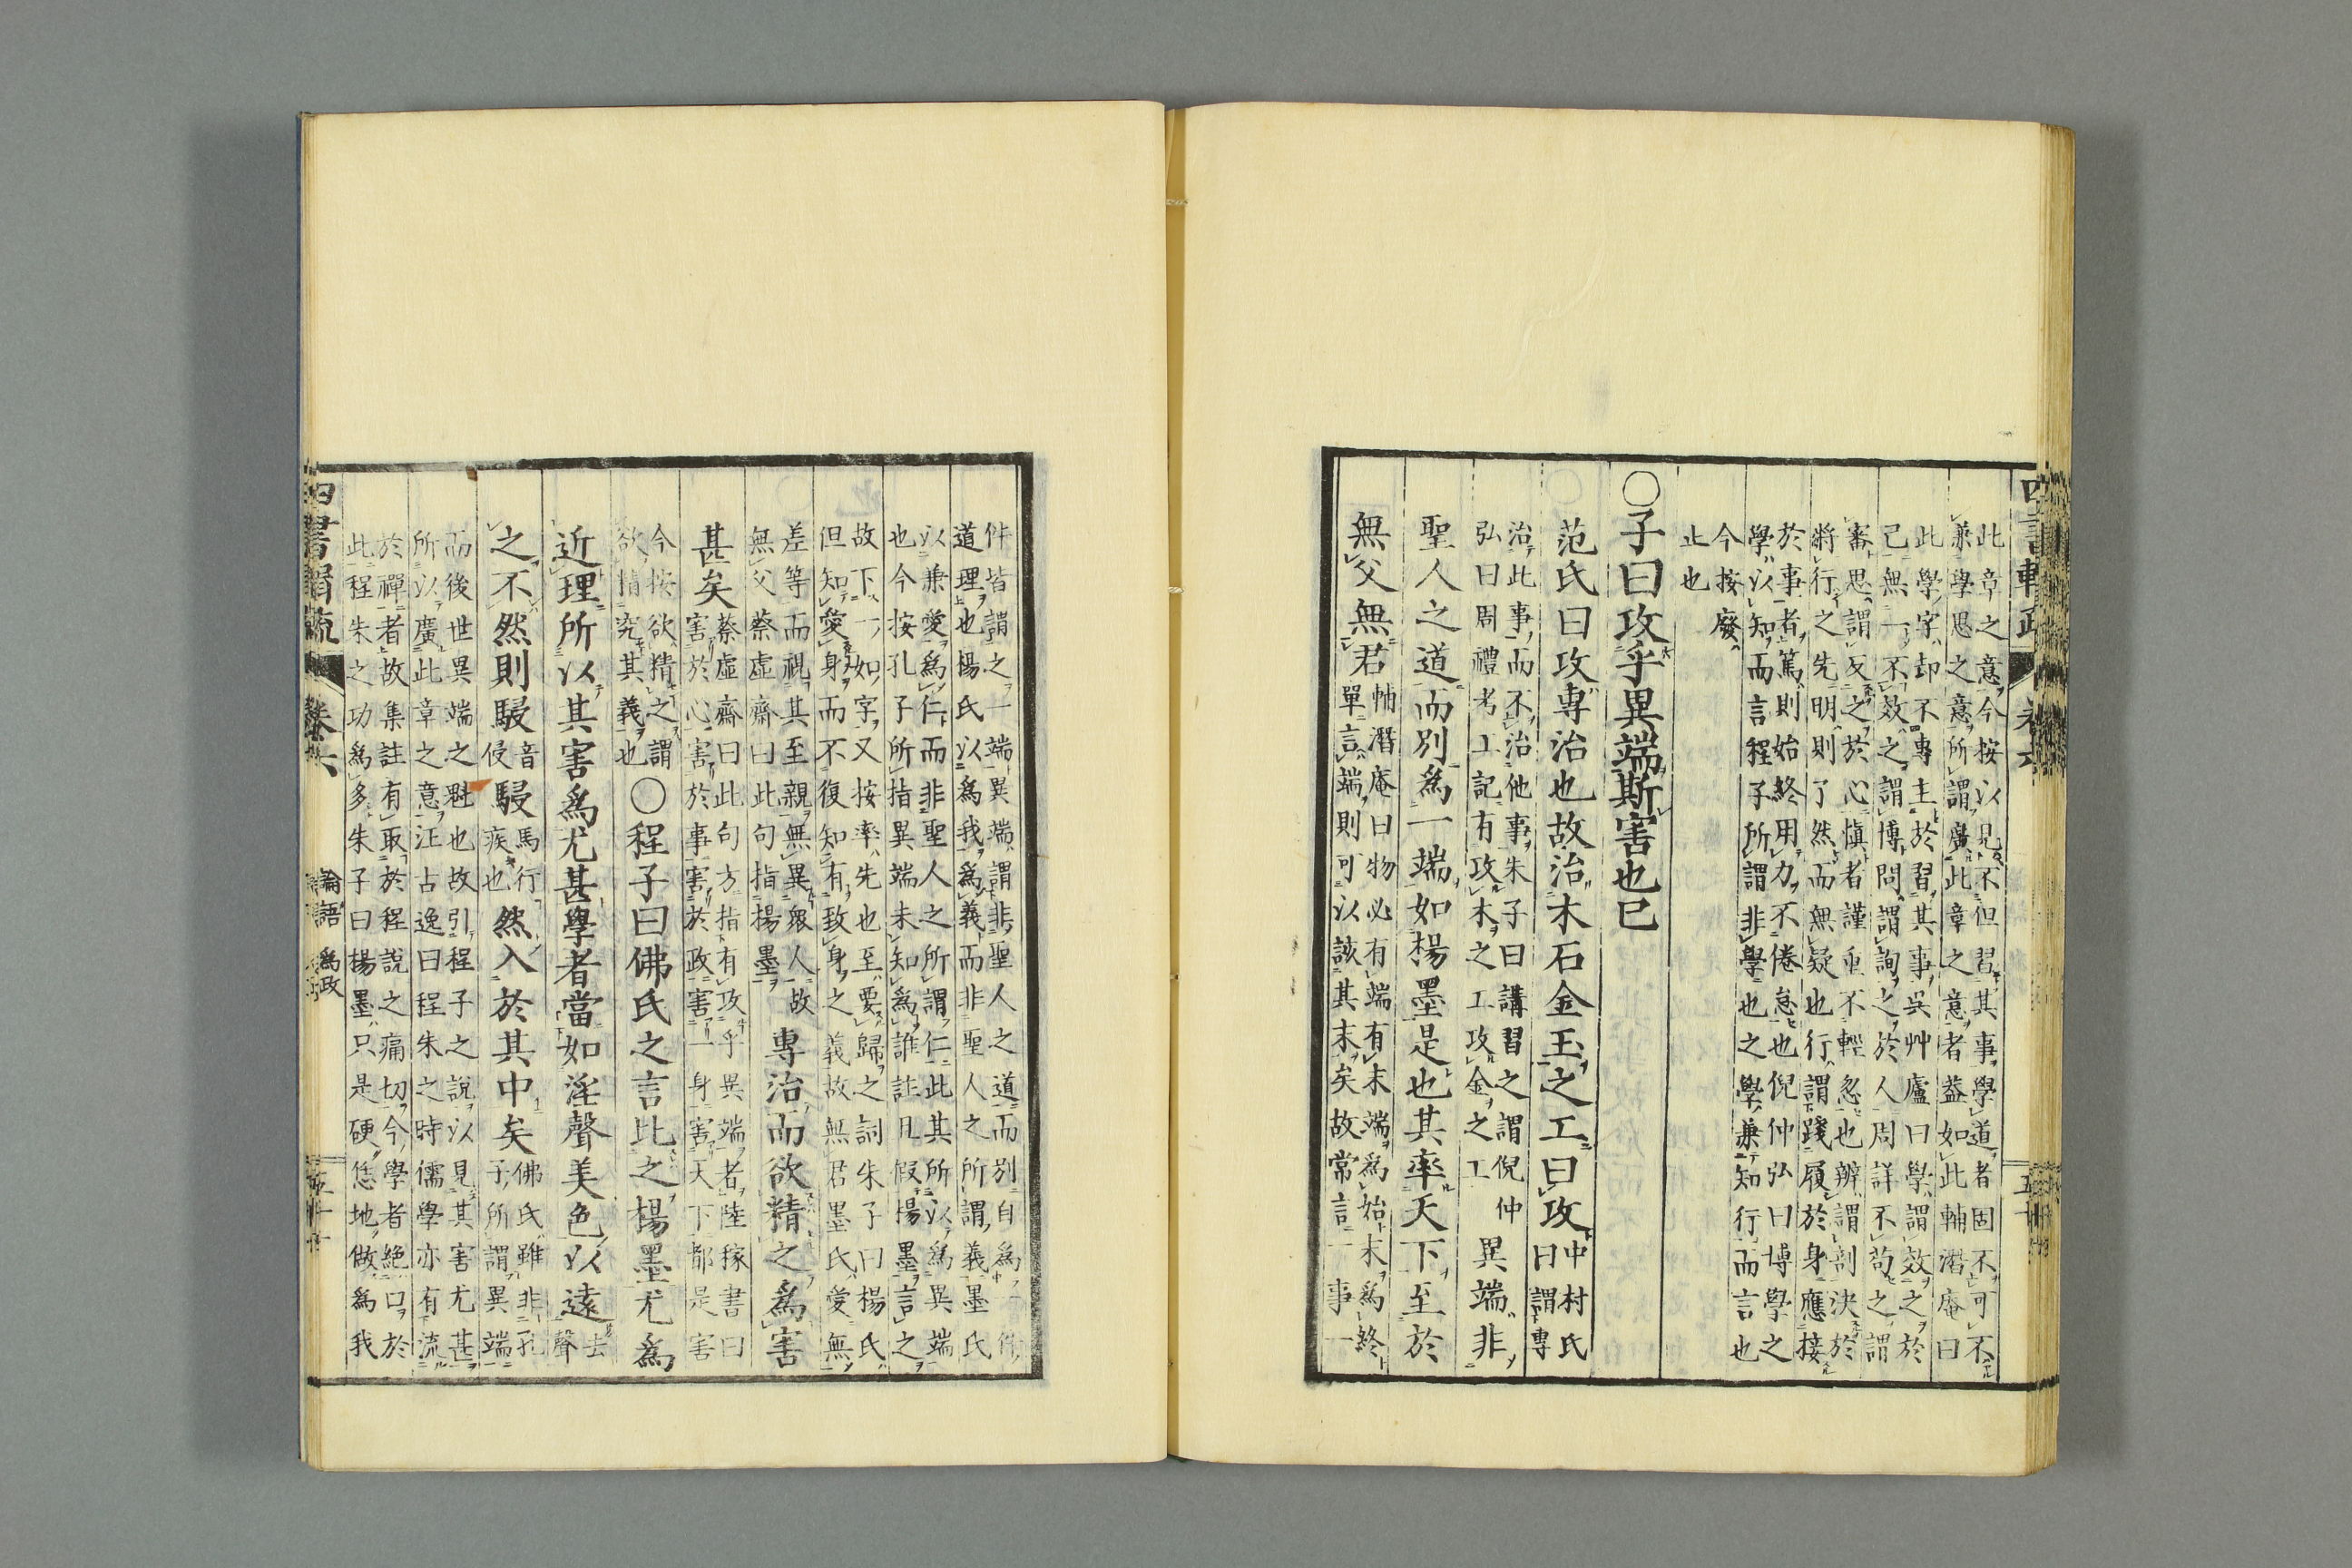 此章之意今按以見不但習其事學道者固不可不
兼學思之意所謂廣此章之意者蓋如此輔潛庵曰
此學字却不專主於習其事吳艸廬曰學謂效之於
己無一不效之謂博問謂詢之於人周詳不苟之謂
審思謂反之於心愼者謹重不輕忽也辨謂剖決於
將行之先明則了然而無疑也行謂踐履於身應接
於事者篤則始終用力不倦怠也倪仲弘曰博學之
學以知而言程子所謂非學也之學兼知行而言也
今按廢
止也
〇子曰攻乎異端斯害也已
范氏曰攻專治也故治木石金玉之工曰攻
中村氏
曰謂專
治此事而不治他事朱子曰講習之謂倪仲
弘曰周禮考工記有攻木之工攻金之工
異端非
聖人之道而別爲一端如楊墨是也其率天下至於
無父無君
輔潛庵曰物必有端有末端爲始末爲終
單言端則可以該其末矣故常言一事一
件皆謂之一端異端謂非聖人之道而別自爲一件
道理也楊氏以爲我爲義而非聖人之所謂義墨氏
以兼愛爲仁而非聖人之所謂仁此其所以爲異端
也今按孔子所指異端未知爲誰註且假楊墨言之
故下一如字又按率先也至要歸之詞朱子曰楊氏
但知愛身而不復知有致身之義故無君墨氏愛無
差等而視其至親無異衆人故
無父蔡虛齋曰此句指楊墨
專治而欲精之爲害
甚矣
蔡虛齋曰此句方指有攻乎異端者陸稼書曰
害於心害於事害於政害一身害天下都是害
今按欲精之謂
欲精究其義也
〇程子曰佛氏之言比之楊墨尤爲
近理所以其害爲尤甚學者當如淫聲美色以遠
去
聲
之不然則駸
音
侵
駸
馬行
疾也
然入於其中矣
佛氏雖非孔
子所謂異端
而後世異端之魁也故引程子之說以見其害尤甚
所以廣此章之意汪古逸曰程朱之時儒學亦有流
於禪者故集註有取於程說之痛切今學者絕口於
此程朱之功爲多朱子曰楊墨只是硬恁地做爲我
四書輯疏
卷六
論語
爲政